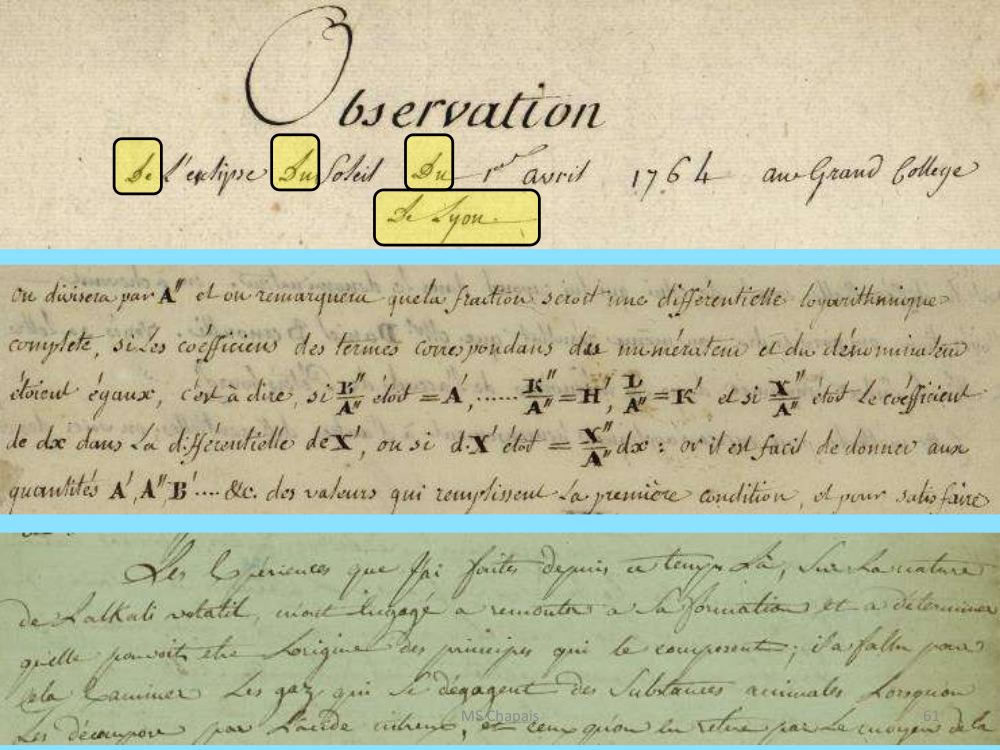 Observation
De l'eclipse Du Soleil Du 1er avril 1764 au Grand College
De Lyon.
on divisera par A'' et on remarquera que la fraction seroit une différentielle logarithmique
complete, si Les coéfficiens des termes correspondans des numérateur et du dénominateur
étoient égaux, c'est à dire, si K''/A'' étoit = A', ...... K''/A'' = H', L/A'' = K' et si X''/A'' étoit Le coéfficient
de dx dans La différentielle de X', ou si dX' étoit = X''/A'' dx : or il est facil de donner aux
quantités A', A'', B' .... &c. des valeurs qui remplissent La première condition, et pour satisfaire
Les Expériences que J'ai faites depuis ce temps Là, Sur La nature
de Lalkali volatil, mont Engagé a remonter a La formation et a determiner
quelle pouvoit etre Lorigine des principes qui le composent; il a fallu pour
cela Examiner Les gaz qui Se dégagent des Substances animales Lorsquon
Les décompose par L'acide nitreux, et ceux qu'on en retire par Le moyen de la
MS Chapais
61